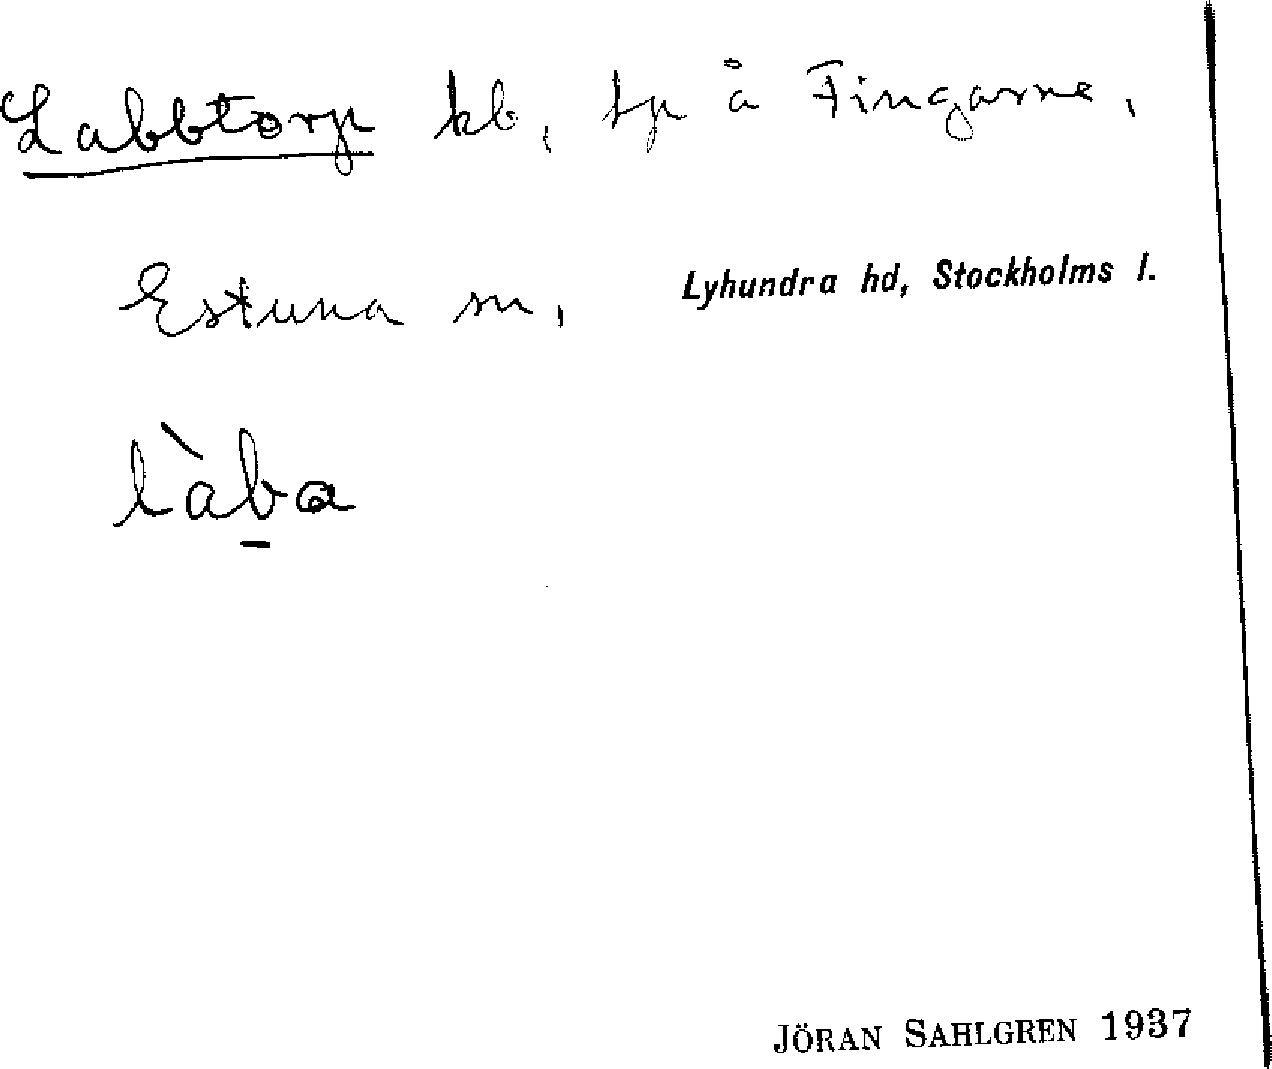 Labbtorp kb, tp å Fingarne,
Estuna sn, Lyhundra hd, Stockholms l.
làba
JÖRAN SAHLGREN 1937